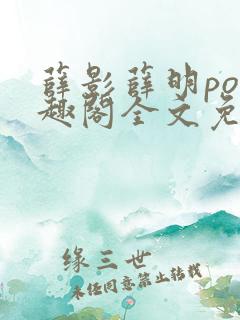 薛影薛明po
趣阁全文免
缘三世
未经同意禁止转载